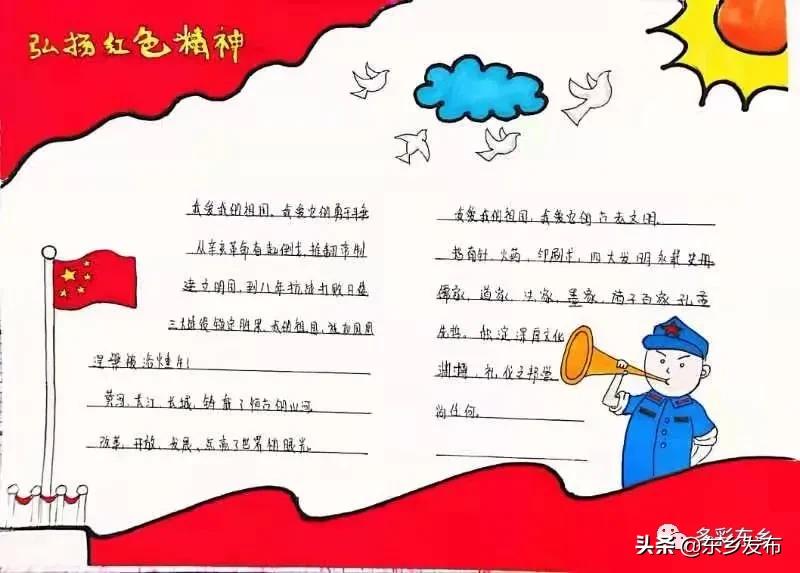 弘扬红色精神
我爱我的祖国、我爱它的勇于
从辛亥革命 推翻帝制
建立明国，到八年抗战打败日
三大战役 定胜果，我的祖国，
涅槃 浴 生！
黄河、长江、长城、铸
改革、开放、发展、点亮了世界的眼光。
我爱我的祖国，我爱它的 古 文明。
指南针、火药、印刷术，四大发明永载史册
儒家、道家、法家、墨家、诸子百家孔孟
先哲， 淀深厚文化
，礼仪之邦
多彩东乡
头条@东乡发布